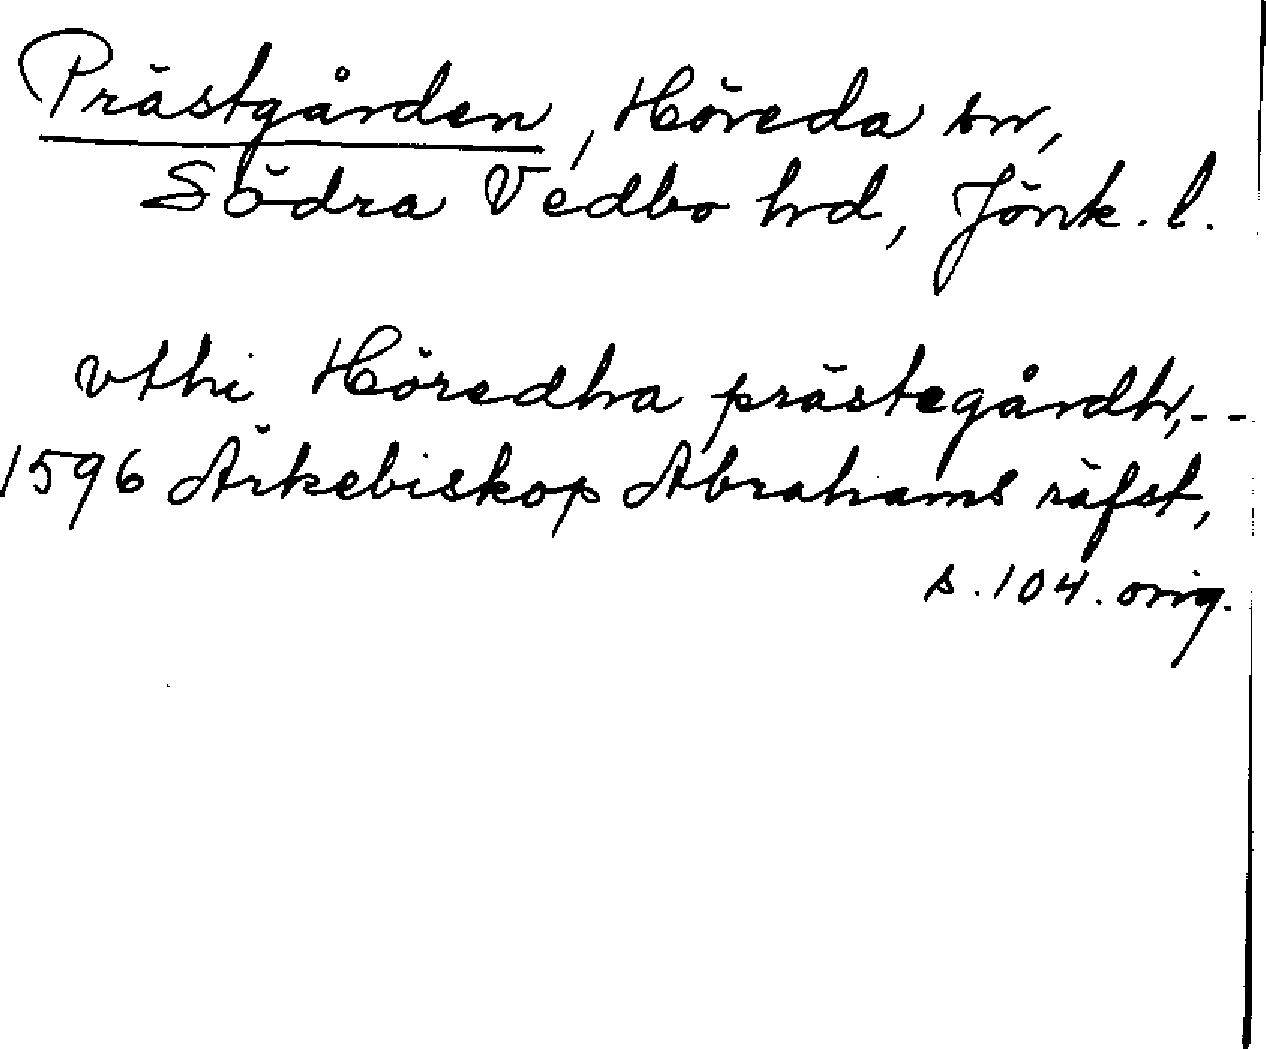 Prästgården, Höreda sn,
Södra Vedbo hrd, Jönk. l.
vthi Höredha prästegårdh,--
1596 Ärkebiskop Abrahams räfst,
s. 104. orig.